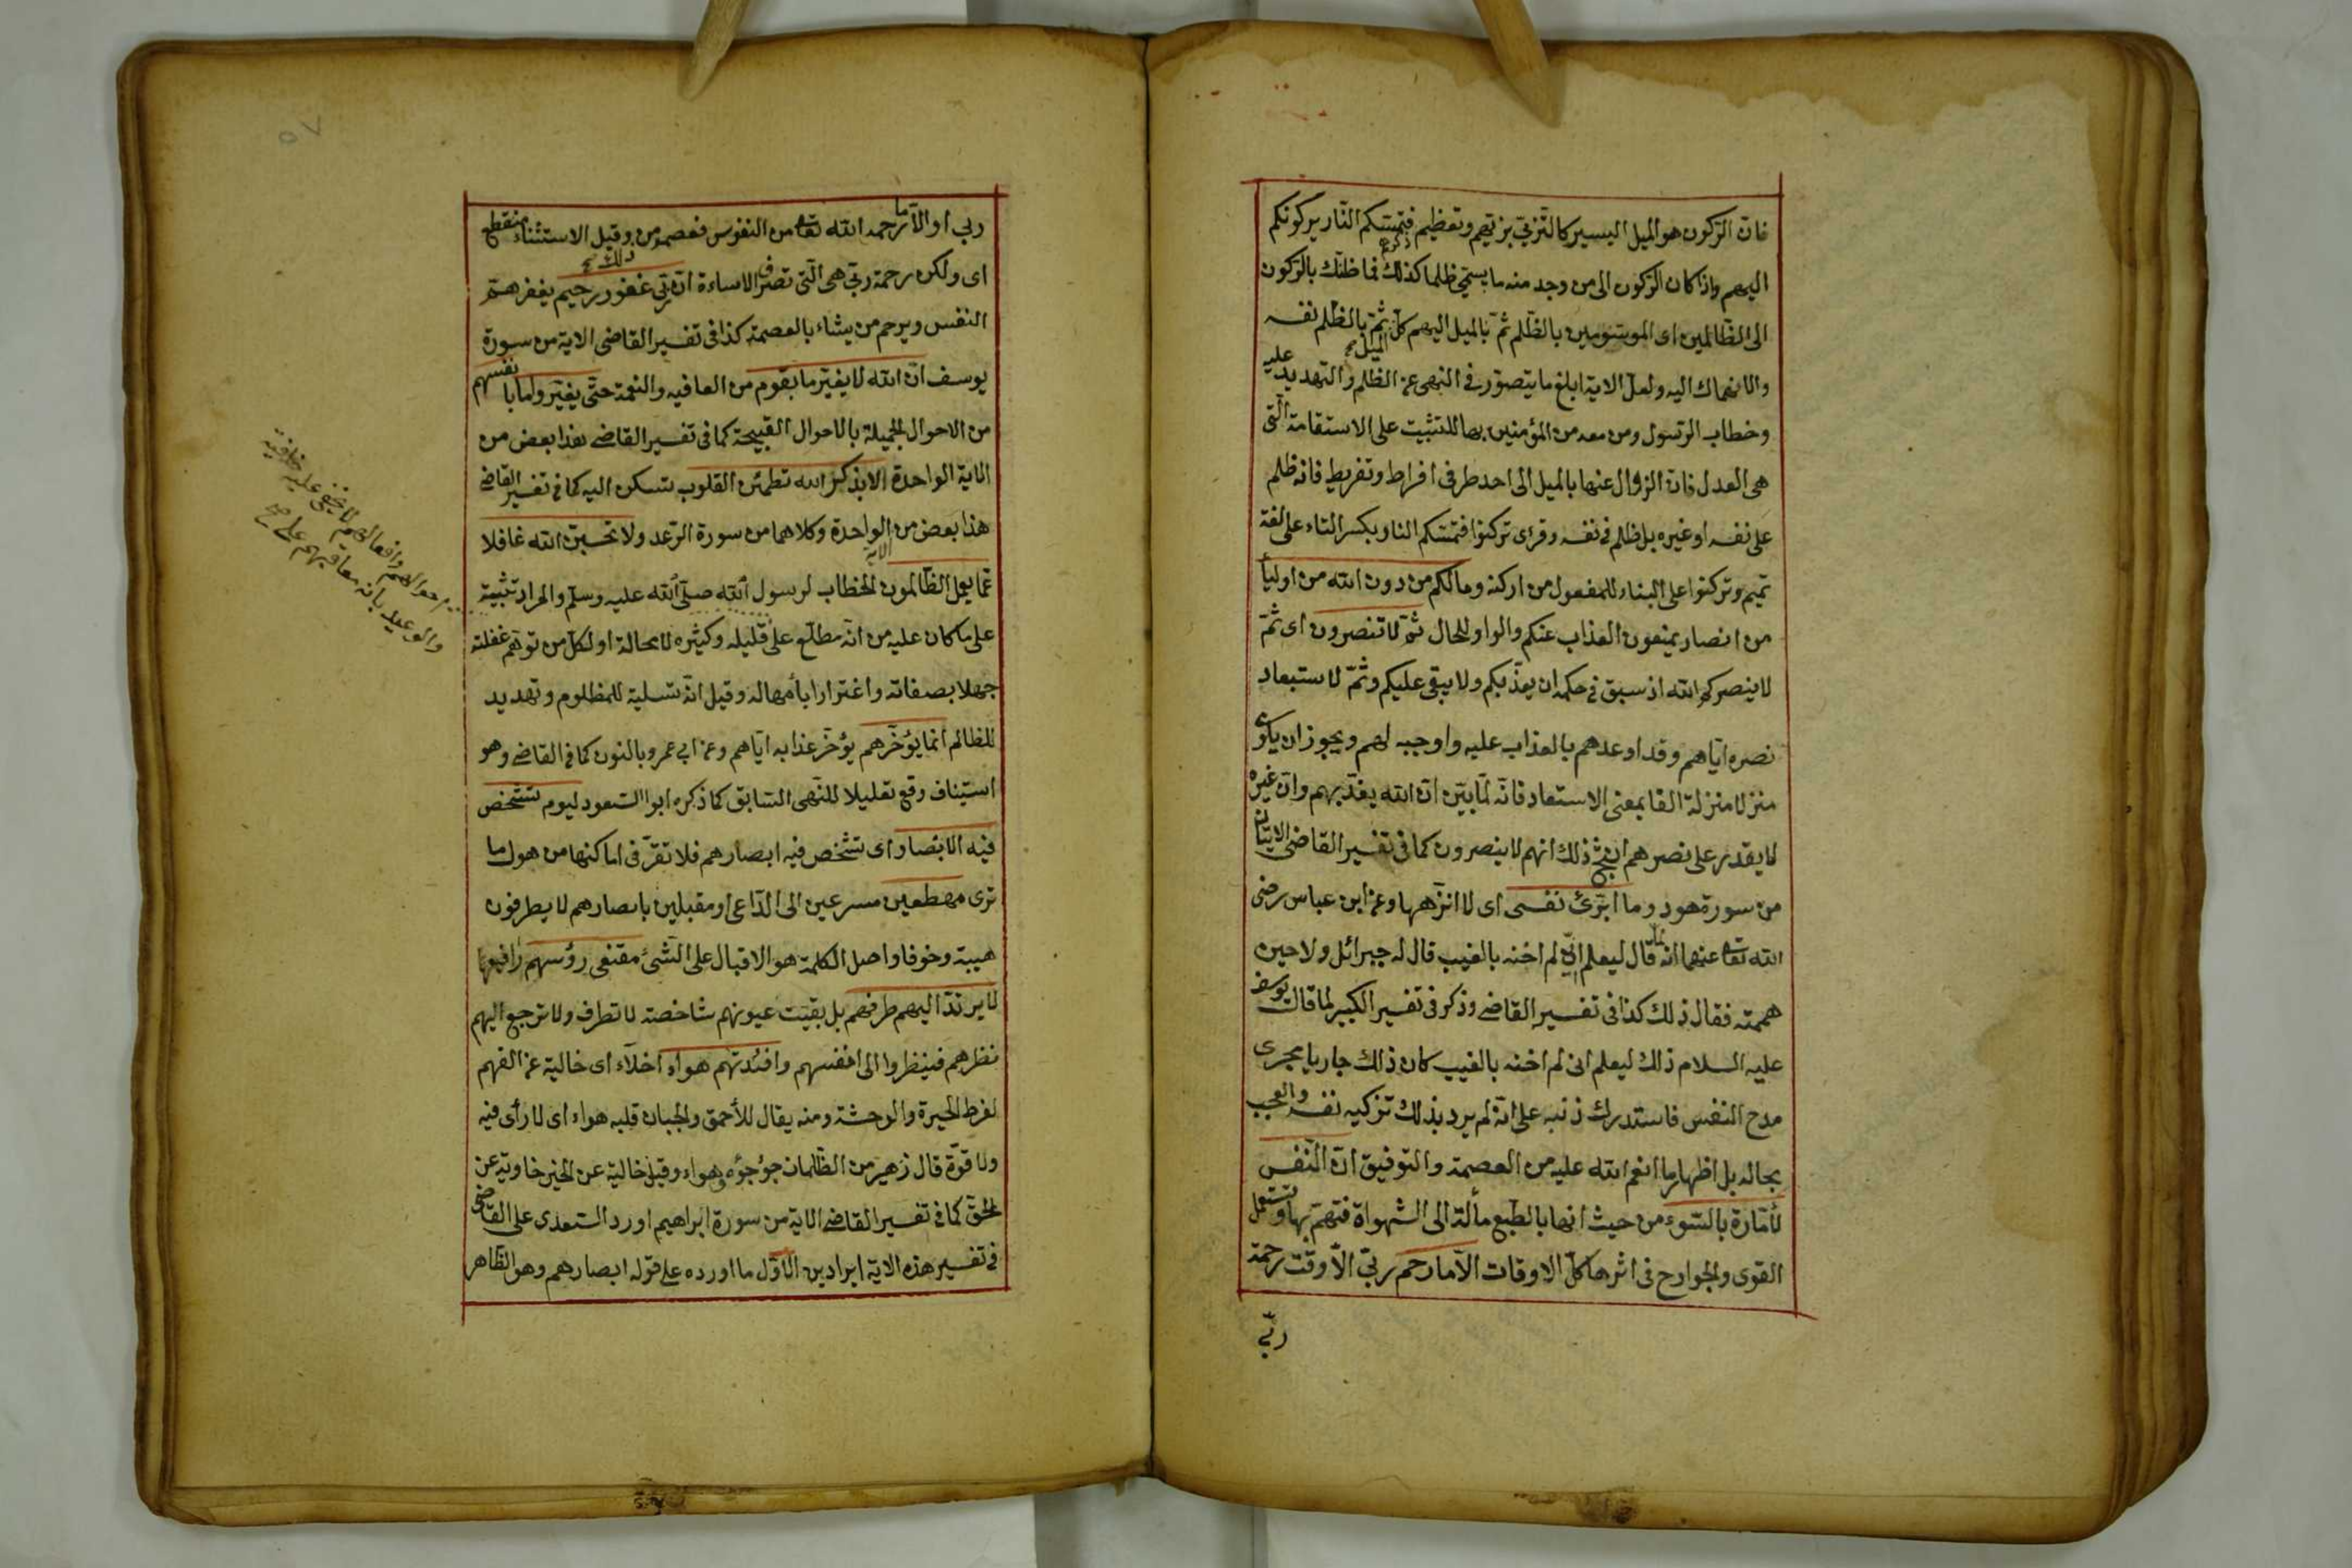 فان الركون هو الميل اليسير كالتزيي بزيهم وتعظيم فتمسكم النار بركونكم
اليهم واذا كان الركون الى من وجد منه ما يسمى ظلما كذلك فما ظنك بالركون
الى الظالمين اى الموسومين بالظلم ثم بالميل اليهم كل الميل ثم بالظلم نفسه
والانهماك اليه ولعل الاية ابلغ ما يتصور فى النهى عن الظلم والتهديد عليه
وخطاب الرسول ومن معه من المؤمنين بها للتثبيت على الاستقامة التى
هى العدل فان الزوال عنها بالميل الى احد طرفى افراط وتفريط فانه ظلم
على نفسه او غيره بل ظلم فى نفسه وقرئ تركنوا فتمسكم النار بكسر التاء على لغة
تميم وتركنوا على البناء للمفعول من اركنه وما لكم من دون الله من اولياء
من انصار يمنعون العذاب عنكم والواو للحال ثم لا تنصرون اى ثم
لا ينصركم الله اذ سبق فى حكمه ان يعذبكم ولا يبقى عليكم وثم لاستبعاد
نصره اياهم وقد اوعدهم بالعذاب عليه واوجبه لهم ويجوز ان يكون
منزلا منزلة الفا بمعنى الاستعاد فانه لما بين ان الله يعذبهم وان غيره
لا يقدر على نصرهم انتج ذلك انهم لا ينصرون كما فى تفسير القاضى الايتان
من سورة هود وما ابرئ نفسى اى لا انزهها وعن ابن عباس رضى
الله تعا عنهما انه لما قال ليعلم انى لم اخنه بالغيب قال له جبرائل ولا حين
هممت فقال ذلك كذا فى تفسير القاضى وذكر فى تفسير الكبير لما قال يوسف
عليه السلام ذلك ليعلم انى لم اخنه بالغيب كان ذلك جاريا مجرى
مدح النفس فاستدرك ذنبه على انه لم يرد بذلك تزكيه نفسه والعجب
بحاله بل اظهار ما انعم الله عليه من العصمة والتوفيق ان النفس
لأمارة بالسوء من حيث انها بالطبع مألة الى الشهواة فتهم بها وتستعمل
القوى والجوارح فى اثرها كل الاوقات الا ما رحم ربى الا وقت رحمة
ربى
ربى او الا ما رحمه الله تعا من النفوس فعصمه من ذلك وقيل الاستثناء منقطع
اى ولكن رحمة ربى هى التى تصرف الاساءة ان ربى غفور رحيم يغفر هم
النفس ويرحم من يشاء بالعصمة كذا فى تفسير القاضى الاية من سورة
يوسف ان الله لا يغير ما بقوم من العافيه والنعمة حتى يغيروا ما بانفسهم
من الاحوال الجميلة بالاحوال القبيحة كما فى تفسير القاضى هذا بعض من
الاية الواحدة الا بذكر الله تطمئن القلوب تسكن اليه كما فى تفسير القاضى
هذا بعض من الاية الواحدة وكلاهما من سورة الرعد ولا تحسبن الله غافلا
عما يعمل الظالمون الخطاب لرسول الله صلى الله عليه وسلم والمراد تثبيته
على ما كان عليه من انه مطلع على قليله وكثيره لا محالة او لكل من توهم غفلته
جهلا بصفاته واغترارا بأمهاله وقيل انه تسلية للمظلوم وتهديد
للظالم انما يؤخرهم يؤخر عذابه اياهم وعن ابى عمرو بالنون كما فى القاضى وهو
استيناف وقع تعليلا للنهى السابق كما ذكره ابوا السعود ليوم تشخص
فيه الابصار اى تشخص فيه ابصارهم فلا تقر فى اماكنها من هول ما
ترى مهطعين مسرعين الى الداعى او مقبلين بابصارهم لا يطرفون
هيبة وخوفا واصل الكلمة هو الاقبال على الشئ مقنعى رؤسهم رافعيها
لا يرتد اليهم طرفهم بل بقيت عيونهم شاخصة لا تطرف ولا ترجع اليهم
نظرهم فينظروا الى انفسهم وافئدتهم هواء اخلاء اى خالية عن الفهم
لفرط الحيرة والوحشة ومنه يقال للأحمق والجبان قلبه هواء اى لا رأى فيه
ولا قوة قال زهير من الظلمان جؤجؤه هواء وقيل خالية عن الخير خاوية عن
الحق كما فى تفسير القاضى الاية من سورة ابراهيم اورد السعدى على القاضى
فى تفسير هذه الاية ايرادين الاول ما اورده على قوله ابصارهم وهو الظاهر
احوالهم وافعالهم لا يخفى عليه خافية
والوعيد بانه معاقبهم على
٥٧